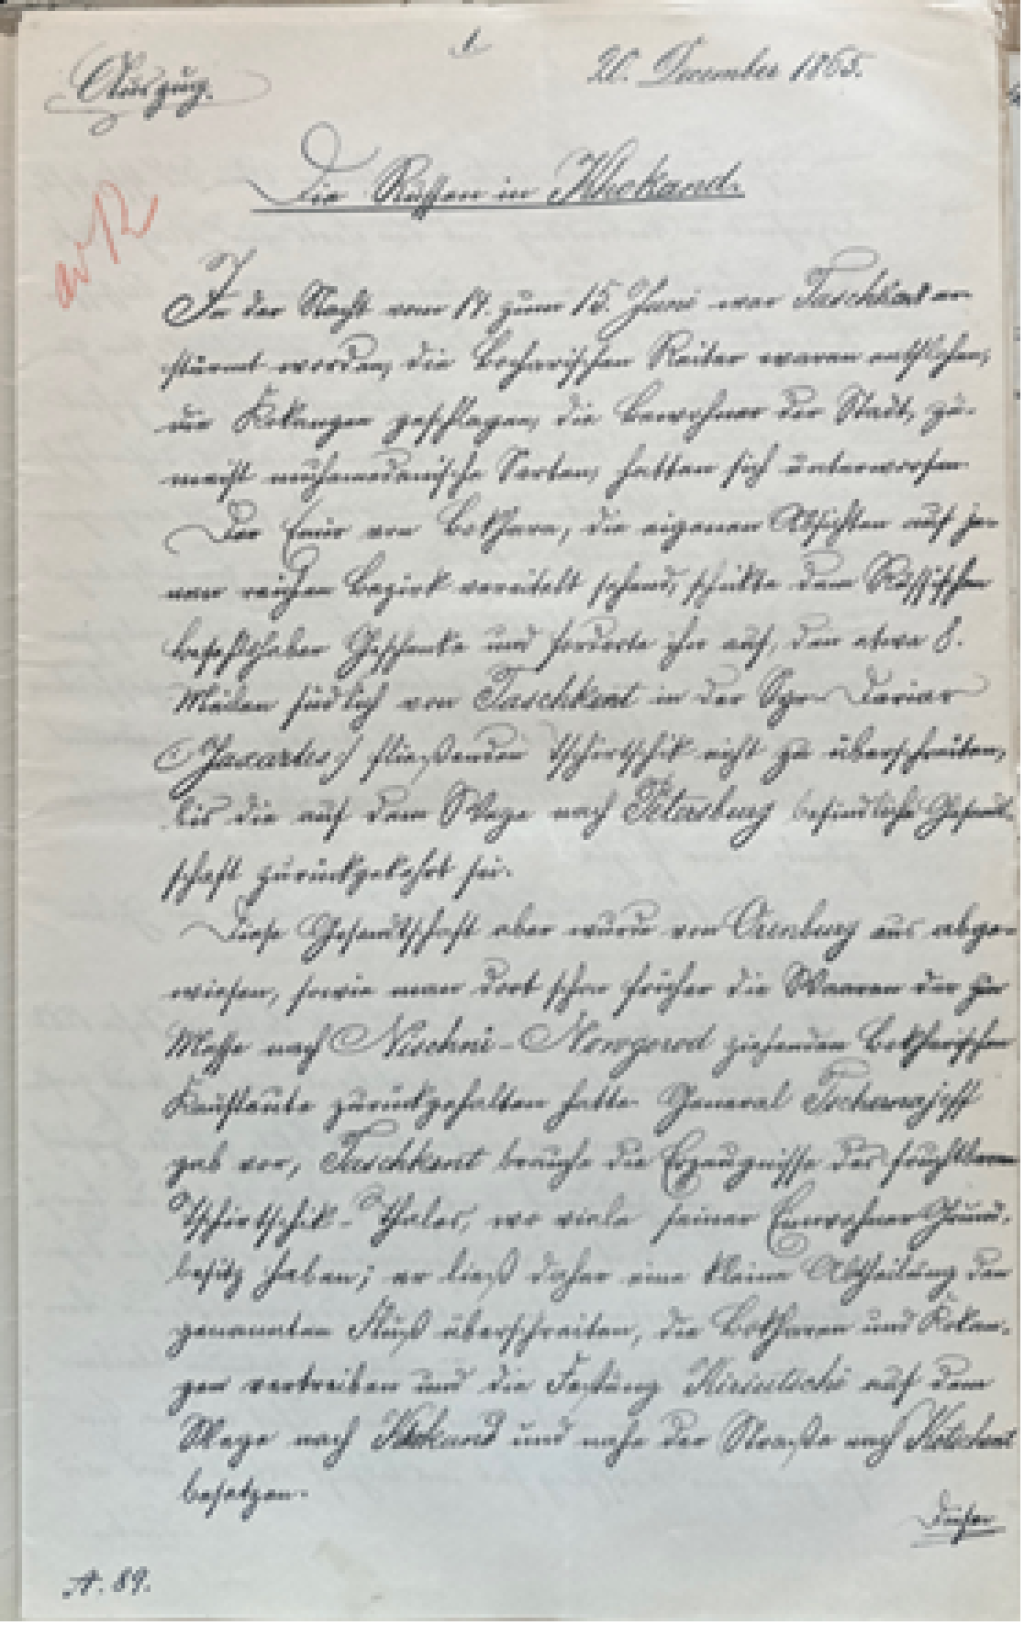 1
Auszug.
20. December 1865.
Die Russen in Khokand.
In der Nacht vom 14. zum 15. Juni war Taschkent er-
stürmt worden, die bocharischen Reiter waren entflohen,
die Kokanzen geschlagen, die Bewohner der Stadt, zu-
meist muhamedanische Sarten, hatten sich unterworfen
Der Emir von Bokhara, die eigenen Absichten auf je-
nen reichen Bezirk vereitelt sehend, schickte dem Russischen
Befehlshaber Geschenke und forderte ihn auf, den etwa 8.
Meilen südlich von Taschkent in der Syr-Dariar
(Jaxartes) fließenden Tschirtschik nicht zu überschreiten,
bis die auf dem Wege nach Petersburg befindliche Gesandt-
schaft zurückgekehrt sei.
Diese Gesandtschaft aber wurde von Orenburg aus abge-
wiesen, sowie man dort schon früher die Waaren der zur
Messe nach Nischni-Nowgorod ziehenden Bokharischen
Kaufleute zurückgehalten hatte. General Tschernajeff
gab vor, Taschkent brauche die Erzeugnisse des fruchtbaren
Tschirtschik-Thales, wo viele seiner Einwohner Grund-
besitz haben; er ließ daher eine kleine Abtheilung den
genannten Fluß überschreiten, die Bokharen und Kokan-
zen vertreiben und die Festung Kirientschi auf dem
Wege nach Khokand und nahe der Straße nach
besetzen.
Dieser
A. 89.